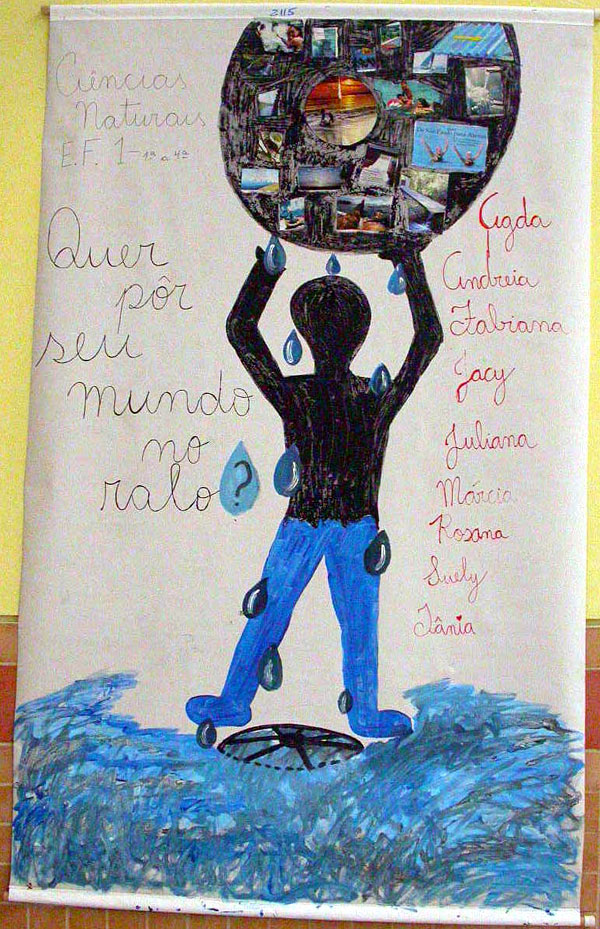 2115
Ciências
Naturais
E.F. 1 - 1ª a 4ª
Quer
pôr
seu
mundo
no
ralo?
Agda
Andreia
Fabiana
Jacy
Juliana
Márcia
Rosana
Suely
Tânia